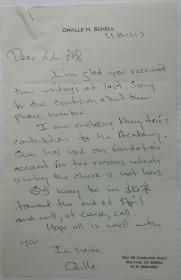 ORVILLE H. SCHELL
Dear 人人城:
I'm glad you received
the writings at last. Sorry
for the confusion about the
phone number.
I am enclosing
contribution to the Academy.
She has used our foundation
account for tax reasons which
is why the check is not hers.
may be in 北京
toward the end of April
and will, of course, call.
Hope all is well with
you
In haste
Orville